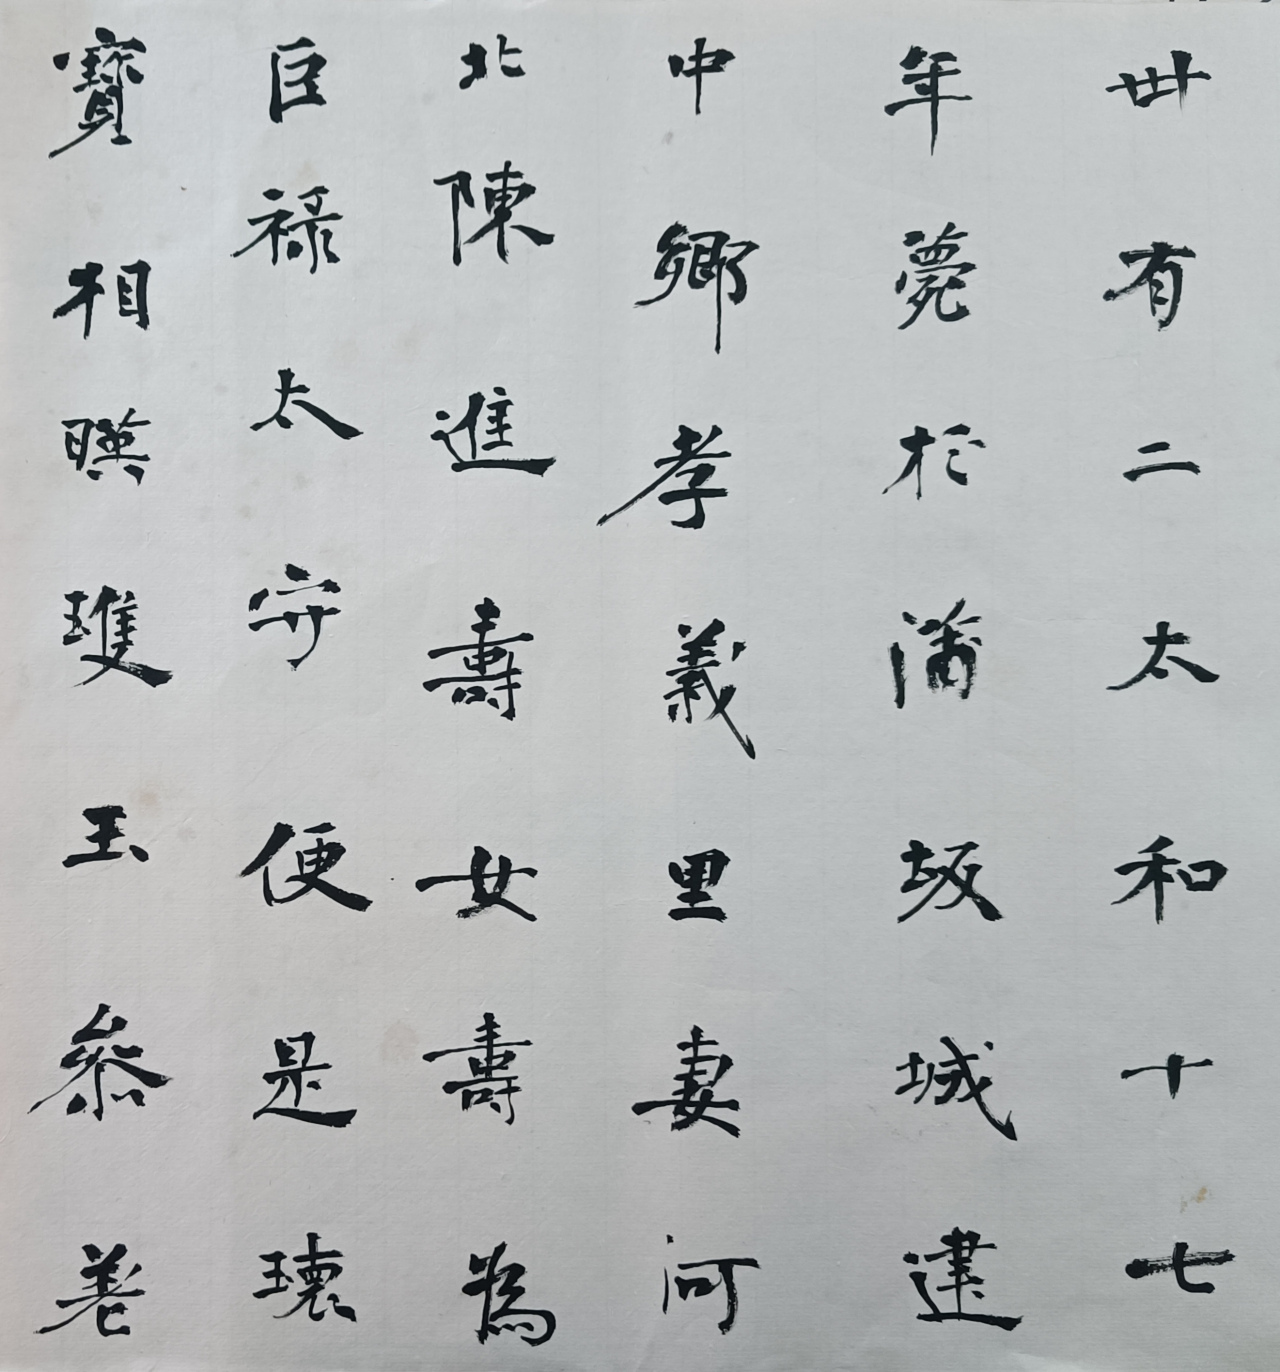 卌有二太和十七
年薨於蒲坂城建
中鄉孝義里妻河
北陳進壽女壽為
巨祿太守便是瓌
寶相暎瓊玉參差